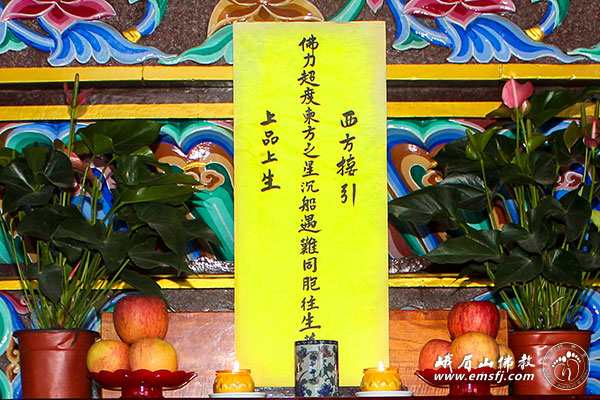 西方接引
佛力超度東方之星沉船遇難同胞往生
上品上生
峨眉山佛教
www.emsfj.com